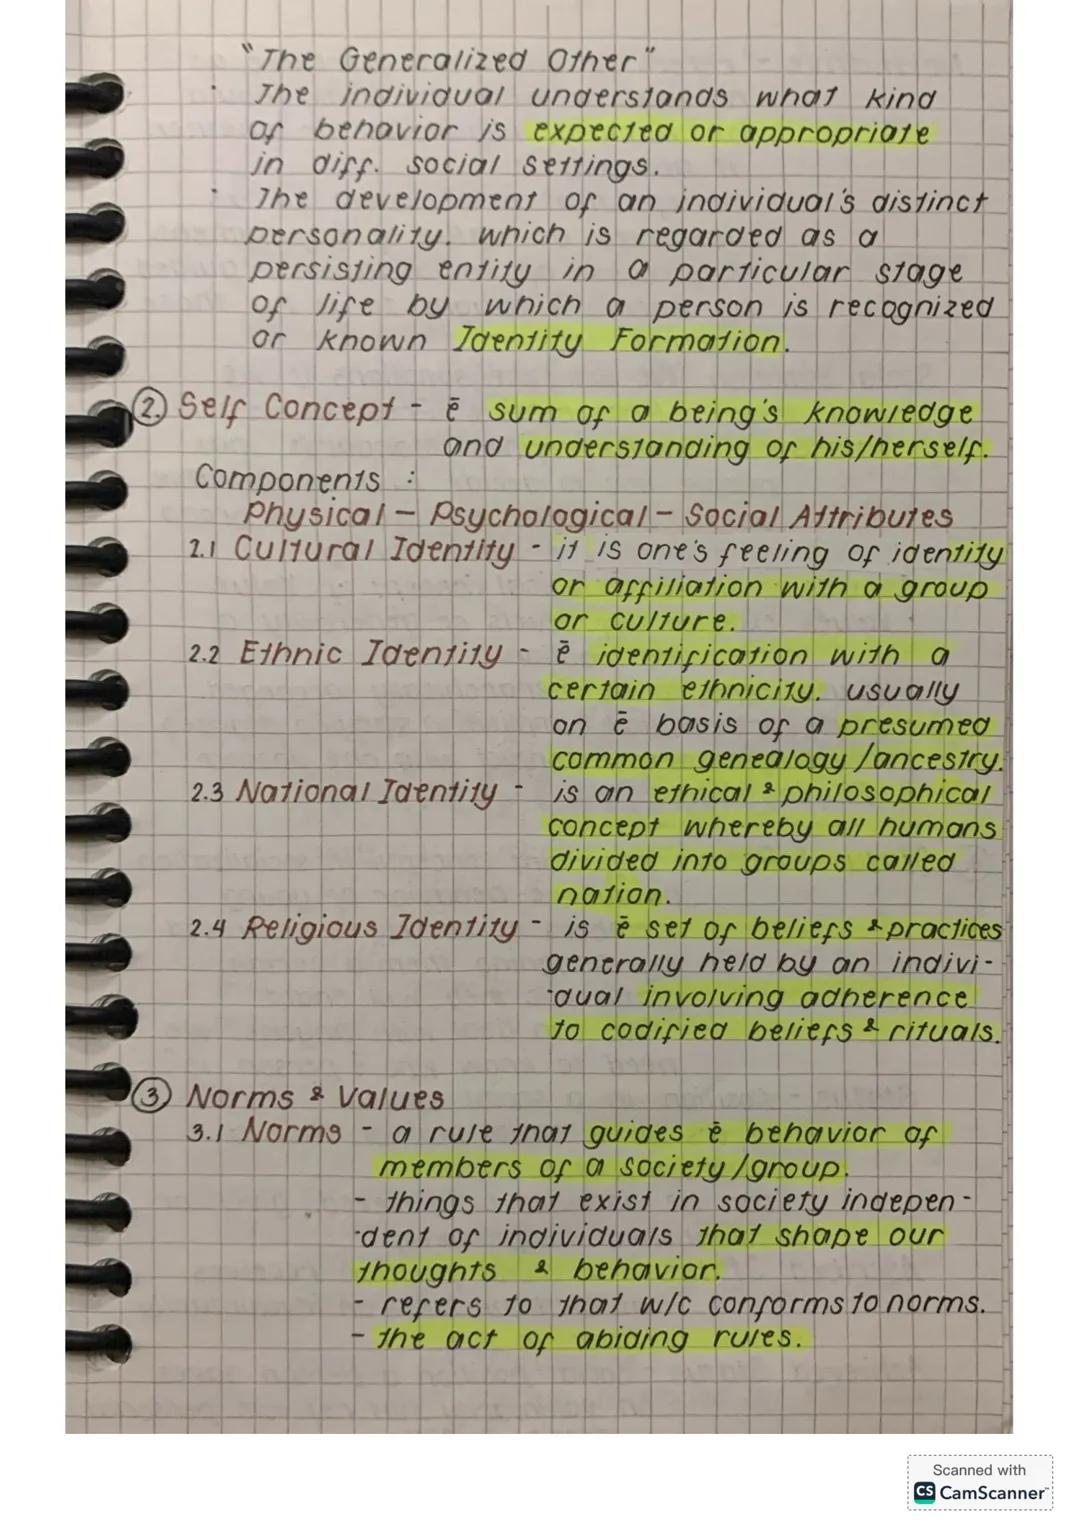 "The Generalized Other"
· The individual understands what kind
of behavior is expected or appropriate
in diff. social settings.
· The development of an individual's distinct
personality. which is regarded as a
persisting entity in a particular stage
of life by which a person is recognized
or known Identity Formation.
2. Self Concept - ē sum of a being's knowledge
and understanding of his/herself.
Components :
Physical - Psychological - Social Attributes
2.1 Cultural Identity - it is one's feeling of identity
or affiliation with a group
or culture.
2.2 Ethnic Identity - ē identification with a
certain ethnicity. usually
on ē basis of a presumed
common genealogy/ancestry.
2.3 National Identity - is an ethical & philosophical
concept whereby all humans
divided into groups called
nation.
2.4 Religious Identity - is ē set of beliefs & practices
generally held by an indivi-
-dual involving adherence
to codified beliefs & rituals.
3 Norms & Values
3.1 Norms - a rule that guides ē behavior of
members of a society/group.
- things that exist in society indepen-
-dent of individuals that shape our
thoughts & behavior.
- refers to that w/c conforms to norms.
- the act of abiding rules.
Scanned with
CS CamScanner